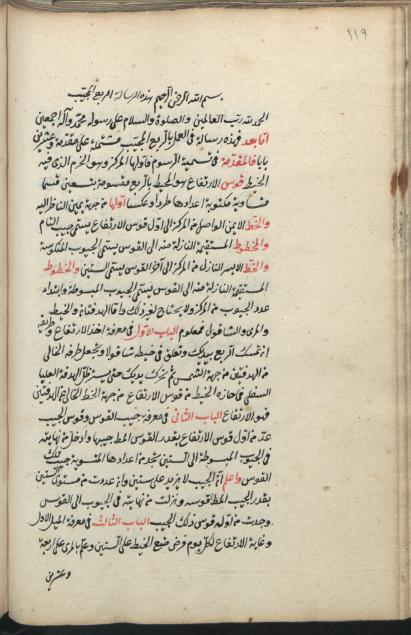 ١١٩
بسم الله الرحمن الرحيم هذه الرسالة الربع المجيب
الحمد لله رب العالمين والصلوة والسلام على رسوله محمد وآله اجمعين
اما بعد فهذه رسالة فى العمل بالربع المجيب مشتملة على مقدمة وعشرين
بابا فالمقدمة فى تسمية الرسوم فاولها المركز وهو الخرم الذى فيه
الخيط قوس الارتفاع هو المحيط بالربع مقسومة بتسعين قسما
متساوية مكتوبة اعدادها طردا وعكسا اولها من جهة يمين الناظر اليه
والخط الايمن الواصل من المركز الى اول قوس الارتفاع يسمى جيب التمام
والخطوط المستقيمة النازلة منه الى القوس يسمى الجيوب المنكوسة
والخط الايسر النازل من المركز الى آخر القوس يسمى الستينى والخطوط
المستقيمة النازلة منه الى القوس يسمى الجيوب المبسوطة وابتداء
عدد الجيوب من المركز ولا يحتاج لغير ذلك واما الهدفتان والخيط
والمرى والشاقول فمعلوم الباب الاول فى معرفة اخذ الارتفاع وطريقه
ان تمسك الربع بيديك وتعلق فى خيطه شاقولا وتجعل طرفه الخالى
من الهدفتين من جهة الشمس ثم تحرك يديك حتى يستظل الهدفة العليا
السفلى فما حازه الخيط من قوس الارتفاع من جهة الخط الخالى من الهدفتين
فهو الارتفاع الباب الثانى فى معرفة جيب القوس وقوس الجيب
عد من اول قوس الارتفاع بقدر القوس المط جيبها وادخل من نهايته
فى الجيوب المبسوطة الى الستين تجد من اعدادها المنسوبة جيب تلك
القوس واعلم ان الجيب لا يزيد على ستين وان عددت من مستوى الستين
بقدر الجيب المط قوسه ونزلت من نهايته فى الجيوب الى القوس
وجدت من اوله قوس ذلك الجيب الباب الثالث فى معرفة الميل الاول
وغاية الارتفاع لكل يوم فرض ضع الخيط على الستين وعلم بالمرى على اربعة
وعشرين